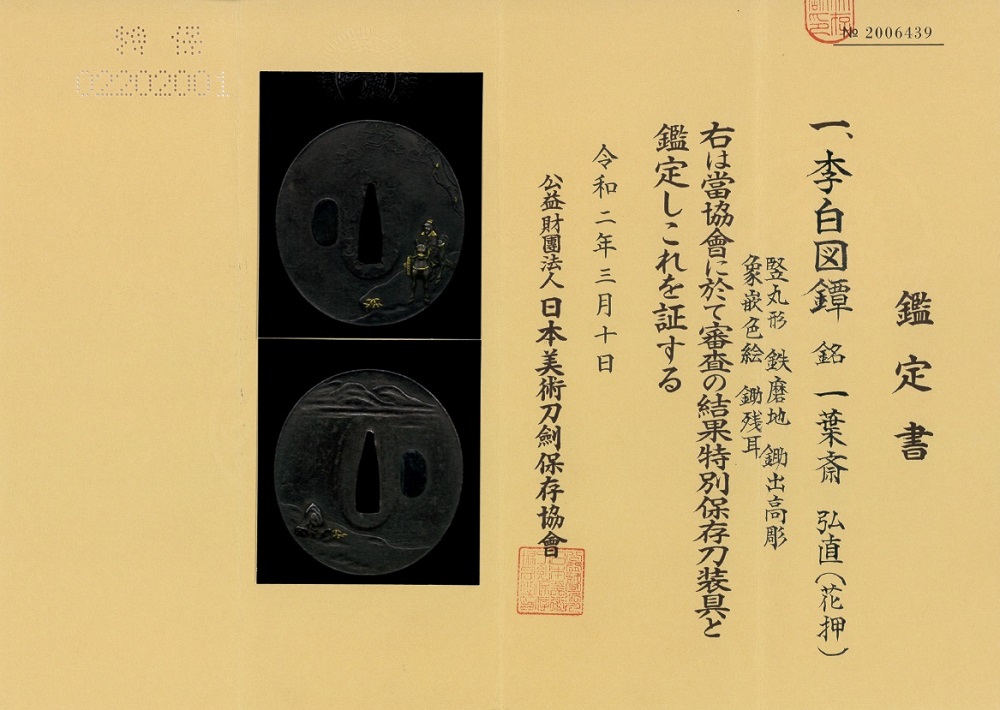 № 2006439
鑑定書
一、李白図鐔 銘 一葉斎 弘直(花押)
竪丸形 鉄磨地 鋤出高彫
象嵌色絵 鋤残耳
右は當協會に於て審査の結果特別保存刀装具と
鑑定しこれを証する
令和二年三月十日
公益財團法人 日本美術刀劍保存協會
特 保
02202001